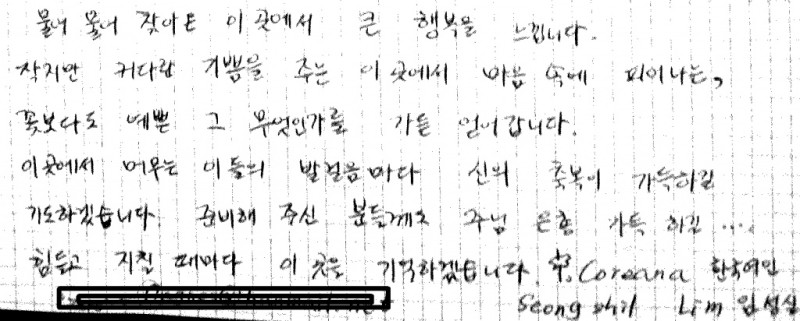 물어 물어 찾아온 이 곳에서 큰 행복을 느낍니다.
작지만 커다란 기쁨을 주는 이 곳에서 마음 속에 피어나는,
꽃보다도 예쁜 그 무엇인가를 가득 얻어갑니다.
이곳에서 머무는 이들의 발걸음마다 신의 축복이 가득하길
기도하겠습니다. 준비해 주신 분들께도 주님 은총 가득 하길 ....
힘들고 지칠 때마다 이 곳을 기억하겠습니다. Coreana 한국여인
Seong phil Lim 임성필